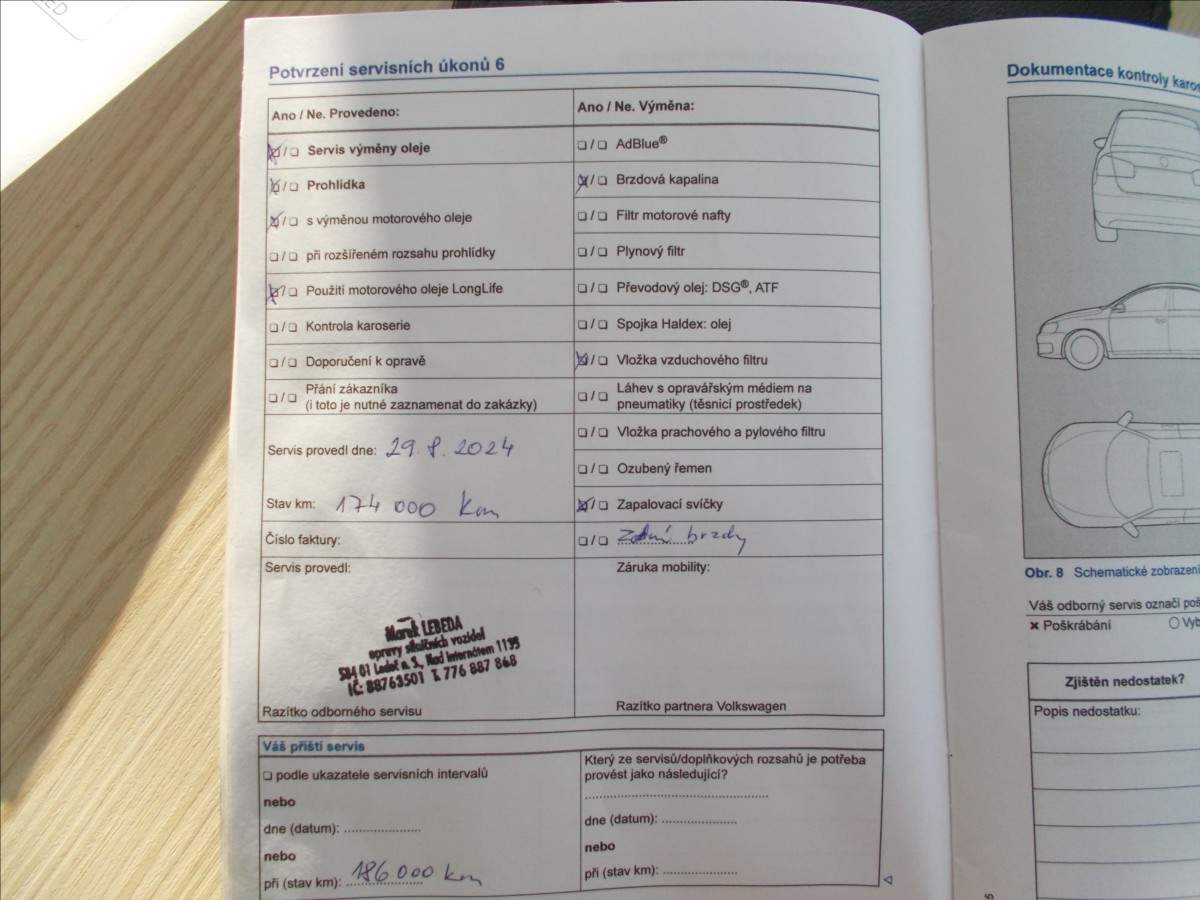 Potvrzení servisních úkonů 6
Ano / Ne. Provedeno:
☒/❏ Servis výměny oleje
☒/❏ Prohlídka
☒/❏ s výměnou motorového oleje
❏/❏ při rozšířeném rozsahu prohlídky
☒/❏ Použití motorového oleje LongLife
❏/❏ Kontrola karoserie
❏/❏ Doporučení k opravě
❏/❏ Přání zákazníka
(i toto je nutné zaznamenat do zakázky)
Servis provedl dne: 29. 8. 2024
Stav km: 174 000 km
Číslo faktury:
Servis provedl:
Marek LEBEDA
opravy silničních vozidel
584 01 Ledeč n. S., Nad Internátem 1195
IČ: 88763501 T. 776 887 868
Razítko odborného servisu
Ano / Ne. Výměna:
❏/❏ AdBlue®
☒/❏ Brzdová kapalina
❏/❏ Filtr motorové nafty
❏/❏ Plynový filtr
❏/❏ Převodový olej: DSG®, ATF
❏/❏ Spojka Haldex: olej
☒/❏ Vložka vzduchového filtru
❏/❏ Láhev s opravářským médiem na
pneumatiky (těsnicí prostředek)
❏/❏ Vložka prachového a pylového filtru
❏/❏ Ozubený řemen
☒/❏ Zapalovací svíčky
❏/❏ Zadní brzdy
Záruka mobility:
Razítko partnera Volkswagen
Váš příští servis
❏ podle ukazatele servisních intervalů
nebo
dne (datum): ....................
nebo
při (stav km): 186 000 km
Který ze servisů/doplňkových rozsahů je potřeba
provést jako následující?
dne (datum): ....................
nebo
při (stav km): ....................
Dokumentace kontroly karos
Obr. 8 Schematické zobrazení
Váš odborný servis označí poš
× Poškrábání ○ Vyb
Zjištěn nedostatek?
Popis nedostatku: